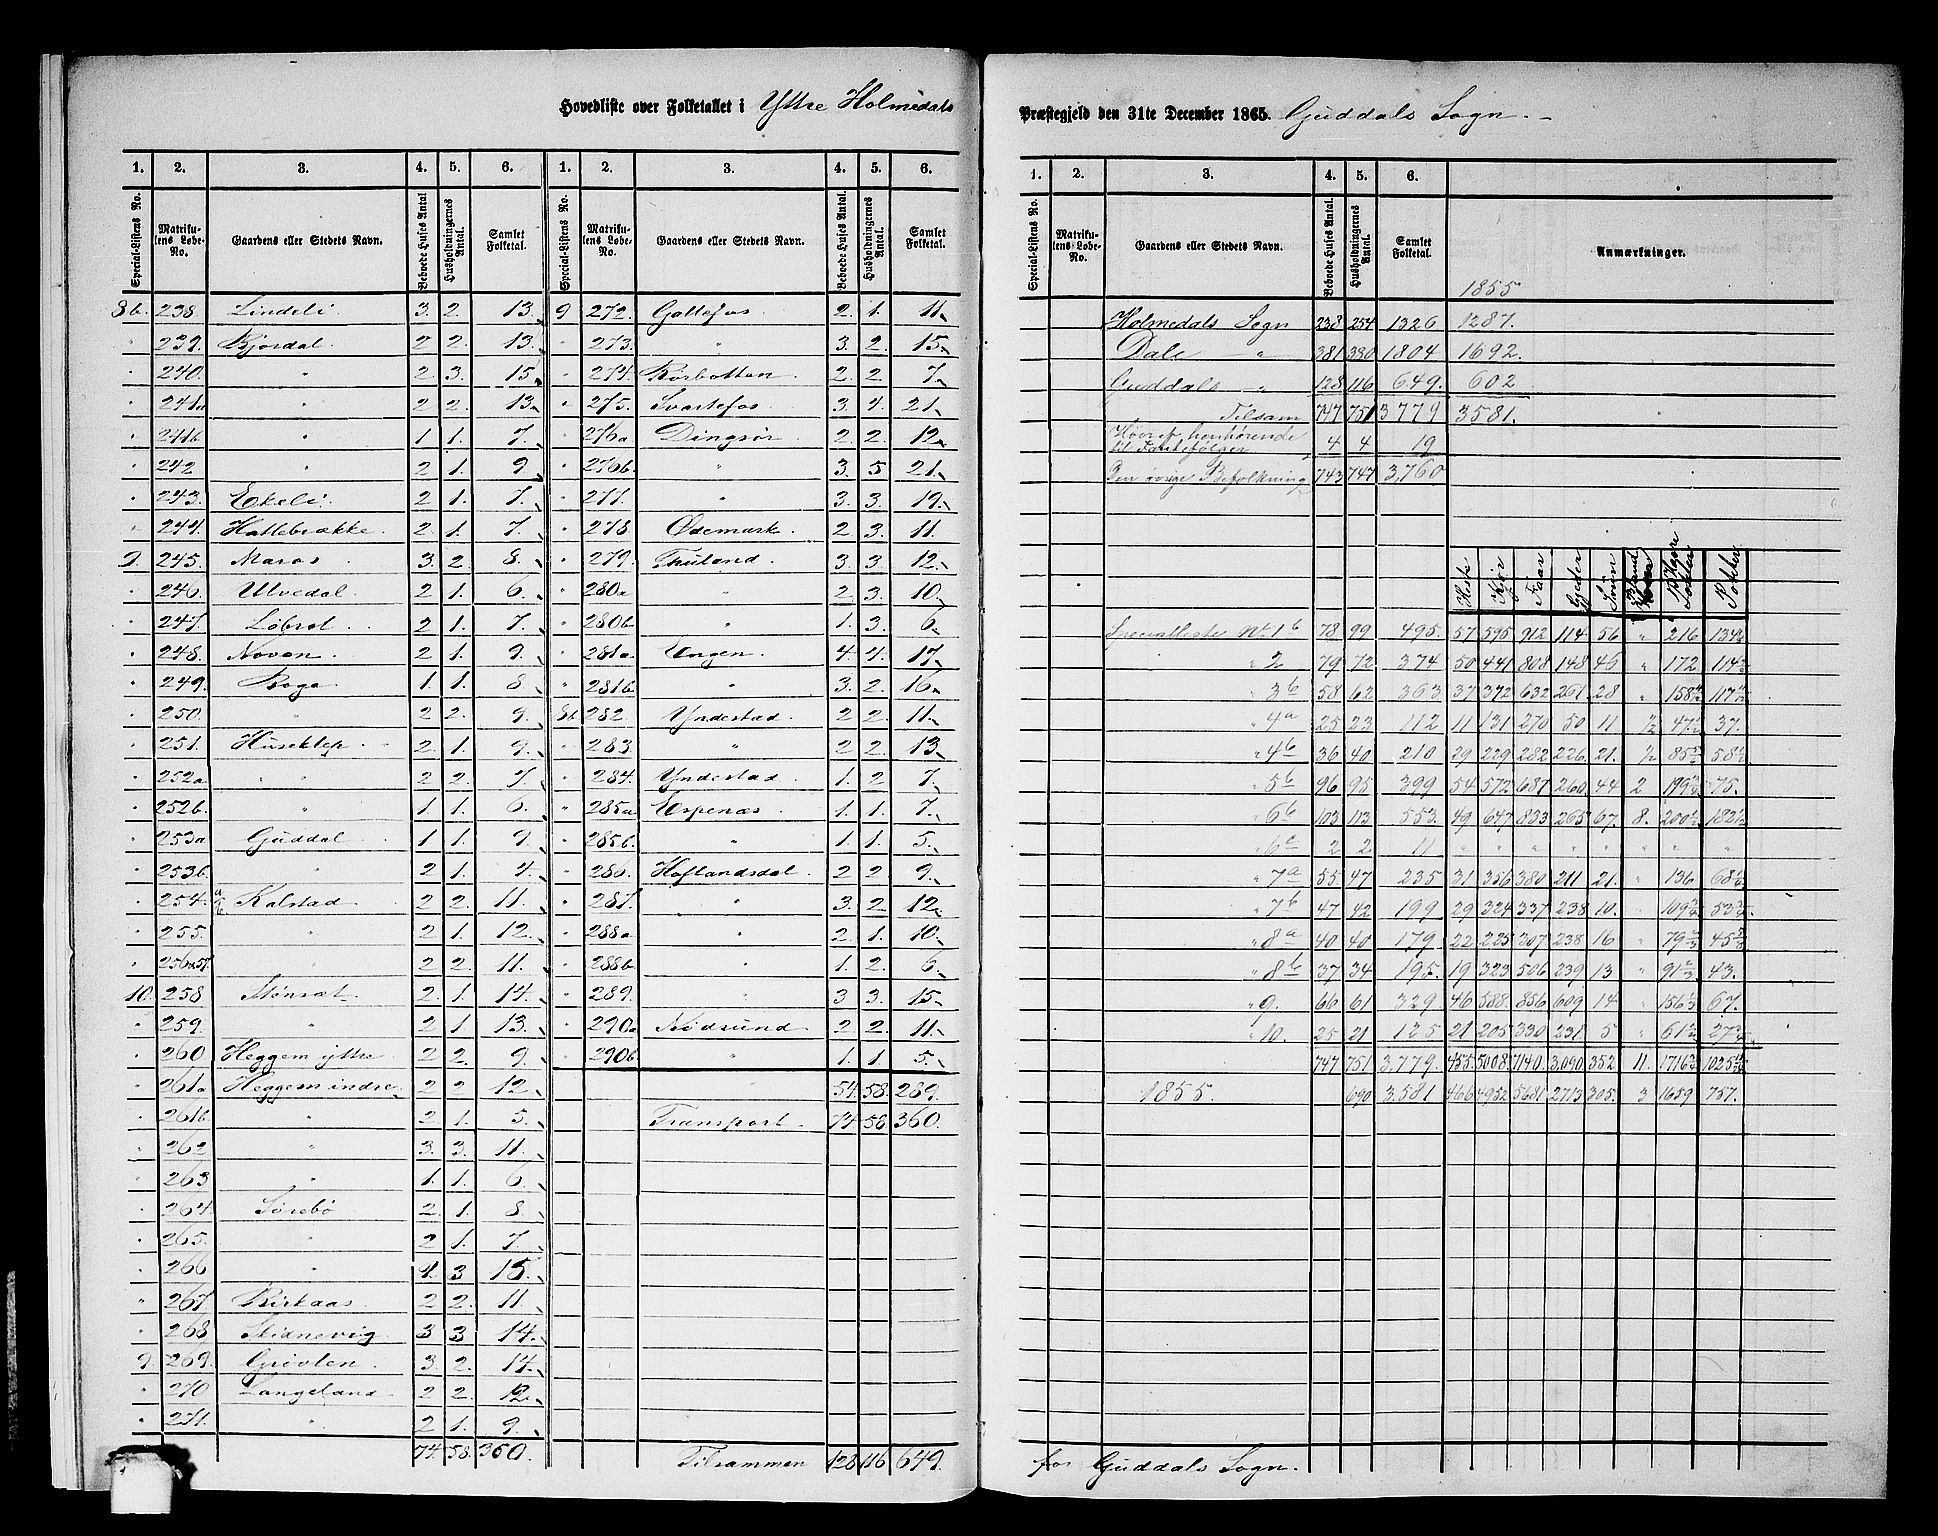 Hovedliste over Folketallet i Yttre Holmedals
1. 2. 3. 4. 5. 6. 1. 2. 3. 4. 5. 6.
Special-Listens No. Matrikulens Løbe-No. Gaardens eller Stedets Navn. Beboede Huses Antal Husholdningernes Antal. Samlet Folketal. Special-Listens No. Matrikulens Løbe-No. Gaardens eller Stedets Navn. Beboede Huses Antal. Husholdningernes Antal. Samlet Folketal.
8b. 238. Lindeli. 3. 2. 13.
" 239. Bjordal. 2 2. 13.
" 240. " 2. 3. 15.
" 241a " 2 2. 13.
" 241b " 1 1. 7.
" 242 " 2 1. 9.
" 243. Ekeli. 2 1. 7.
" 244. Hattebrække. 2 1. 7.
9. 245. Maros. 3. 2 8.
" 246. Ulvedal. 2 1. 6.
" 247. 2 1. 7.
" 248. Noven. 2 1. 9.
" 249. Boge. 1. 1. 8.
" 250. " 2 2. 9.
" 251. Huseklep. 2. 1. 9.
" 252a " 2 2. 7.
" 252b. " 1. 1. 6.
" 253a Guddal. 1 1. 9.
" 253b. " 2 1. 4.
" 254. a/b Kalstad. 2 2. 11.
" 255. " 2 1. 12.
" 256 & 57. " 2 2. 11.
10. 258 2. 1. 14.
" 259. " 2 1. 13.
" 260 Heggem yttre. 2 2. 9.
" 261a Heggem indre. 2 2. 12.
" 261b. " 2 1. 5.
" 262 " 3. 3. 11.
" 263 " 1. 1. 6.
" 264. Sørebø 2. 1. 8.
" 265. " 2 1. 7.
" 266 " 4. 3 15.
" 267. Birkaas. 2 2. 11.
" 268 Skidnevig 3 3 14.
9. 269. Grovlen. 3. 2. 14.
" 270 Langeland 2 2. 12.
" 271. " 2 1. 9.
74. 58. 360.
9 272. Gallefos 2. 1. 11.
" 273. " 3. 2. 15.
" 274. Rørbotten 2. 2. 7.
" 275. Svartefos. 3. 4. 21.
" 276a Dingsør. 2. 2. 12.
" 276b. " 3. 5 21.
" 277. " 3. 3. 19.
" 278. Ødemark. 2 3. 11.
" 279. Thuland. 3. 3. 12.
" 280a " 2 3. 10.
" 280b " 1. 3. 6.
" 281a Engen. 4. 4. 17.
" 281b. " 3. 2. 16.
8b 282. Yndestad. 2 2. 11.
" 283. " 2 2. 13.
" 284. Yndestad. 1. 2 7.
" 285a Espenæs. 1. 1. 7.
" 285b. " 1. 1. 5.
" 286. Hoflandsdal. 2 2 9.
" 287. " 3. 2. 12.
" 288a " 2. 1. 10.
" 288b " 1. 2. 6.
" 289. " 3 3. 15.
" 290a Nødsund 2 2. 11.
" 290b " 1. 1. 5.
54. 58. 289.
Transport. 74. 58 360.
Tilsammen 128 116 649.
Præstegjeld den 31te December 1865. Guddals Sogn.
1. 2. 3. 4. 5. 6.
Special-Listens No. Matrikulens Løbe-No. Gaardens eller Stedets Navn. Beboede Huses Antal. Husholdningernes Antal. Samlet Folketal. Anmærkninger.
1855
Holmedals Sogn 238 254 1326 1287.
Dale " 381 1804 1692.
Guddals " 128 116 649. 602
Tilsam 747 751 3779 3581.
Heraf henhørende
til Fantefølger 4 4 19
Den øvrige Befolkning 743 747 3,760
Heste Kjør Faar Gjeder Svin
Specialliste No 1b 78 99 495. 57 595 912 114 56 " 216
" 2 79 72 374 50 441 808 148 46 " 172
" 3b 58 62 363 37 372 632 261. 28 "
" 4a 25 23 112 11 131 270 50 11 37.
" 4b 36 40 210 29 229 282 226 21.
" 5b 96 95 399 54 572 687 260. 44 2 75.
" 6b 103 113 553. 49 647 833 265 67. 8.
2 2 11 " " " " " " " "
" 7a 55. 47 235 31 356 380 211 21. " 136
" 7b 47 42 199 29 324 337 238 10. "
" 8a 40 40 179. 22 225 307 238 16 "
" 8b 37 34 195. 19 323 506 239 13 " 43.
" 9. 66 61 329 46 588 856 609 14 " 67.
" 10. 25 21 125 21 205 330 231. 5 "
747 751 3,779. 455. 5008. 7140. 3,090 352 11.
1855. 690 3,581 466 4952 5681 2713 305. 3 1659 757.
for Guddals Sogn.